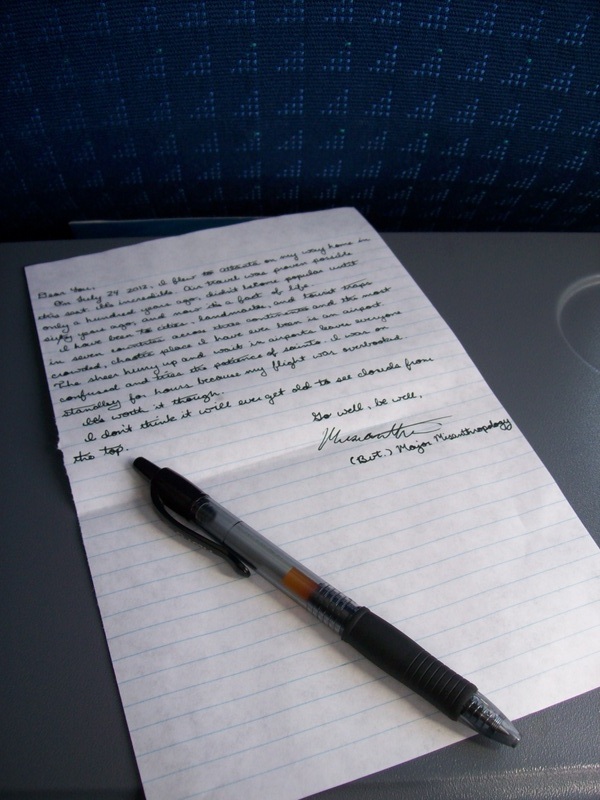 Dear You,
On July 24, 2012, I flew to Atlanta on my way home in
this seat. It's incredible. Air travel was proven possible
only a hundred years ago, didn't become popular until
sixty years ago, and now it's a fact of life.
I have been to cities, landmarks, and tourist traps
in seven countries across three continents and the most
crowded, chaotic place I have ever been is an airport.
The sheer hurry up and wait in airports leaves everyone
confused and tries the patience of saints. I was on
standby for hours because my flight was overbooked.
It's worth it though.
I don't think it will ever get old to see clouds from
the top.
Go well, be well,
(Bvt.) Major Misanthropology